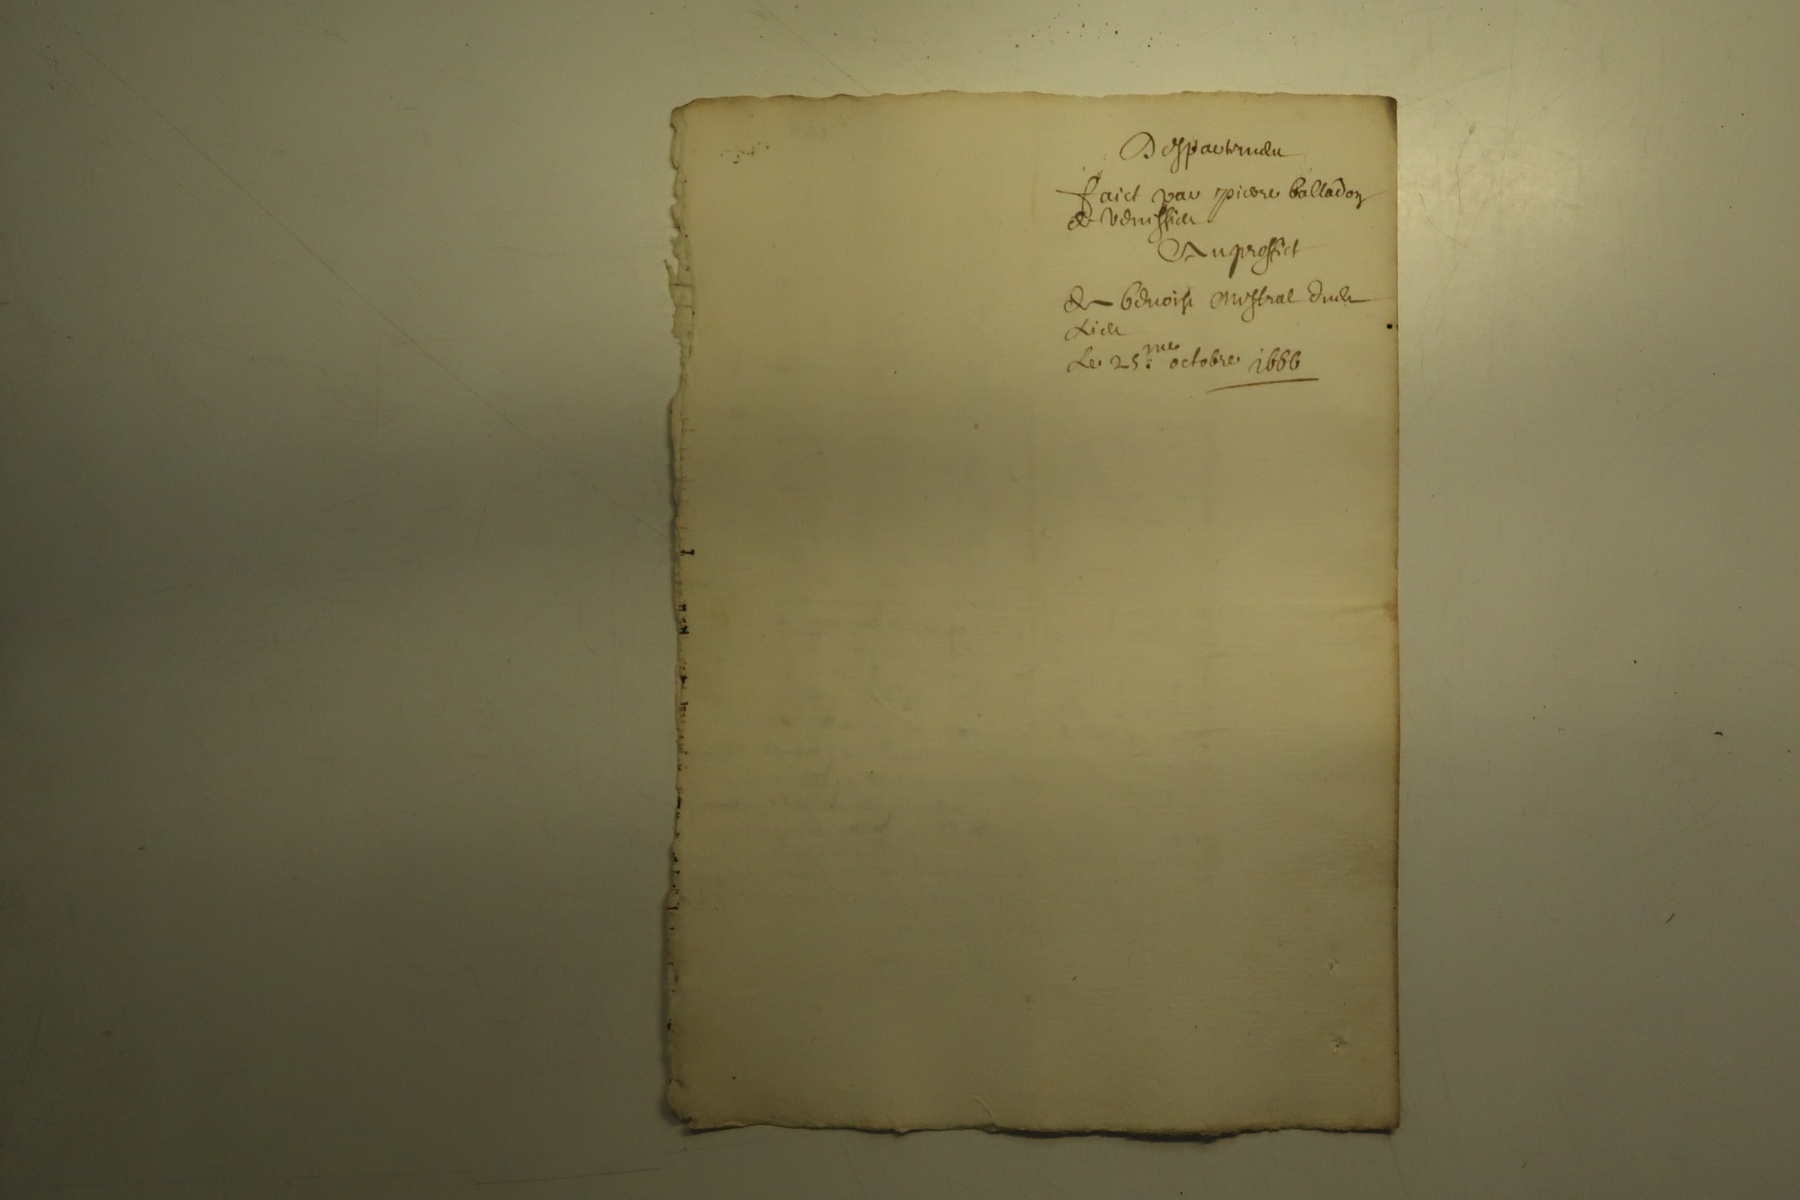 Despartemen
faict par pierre balladon
de Venissieu
Au proffict
de benoist Mistral dudit
Lieu
Le 25:me octobre 1666